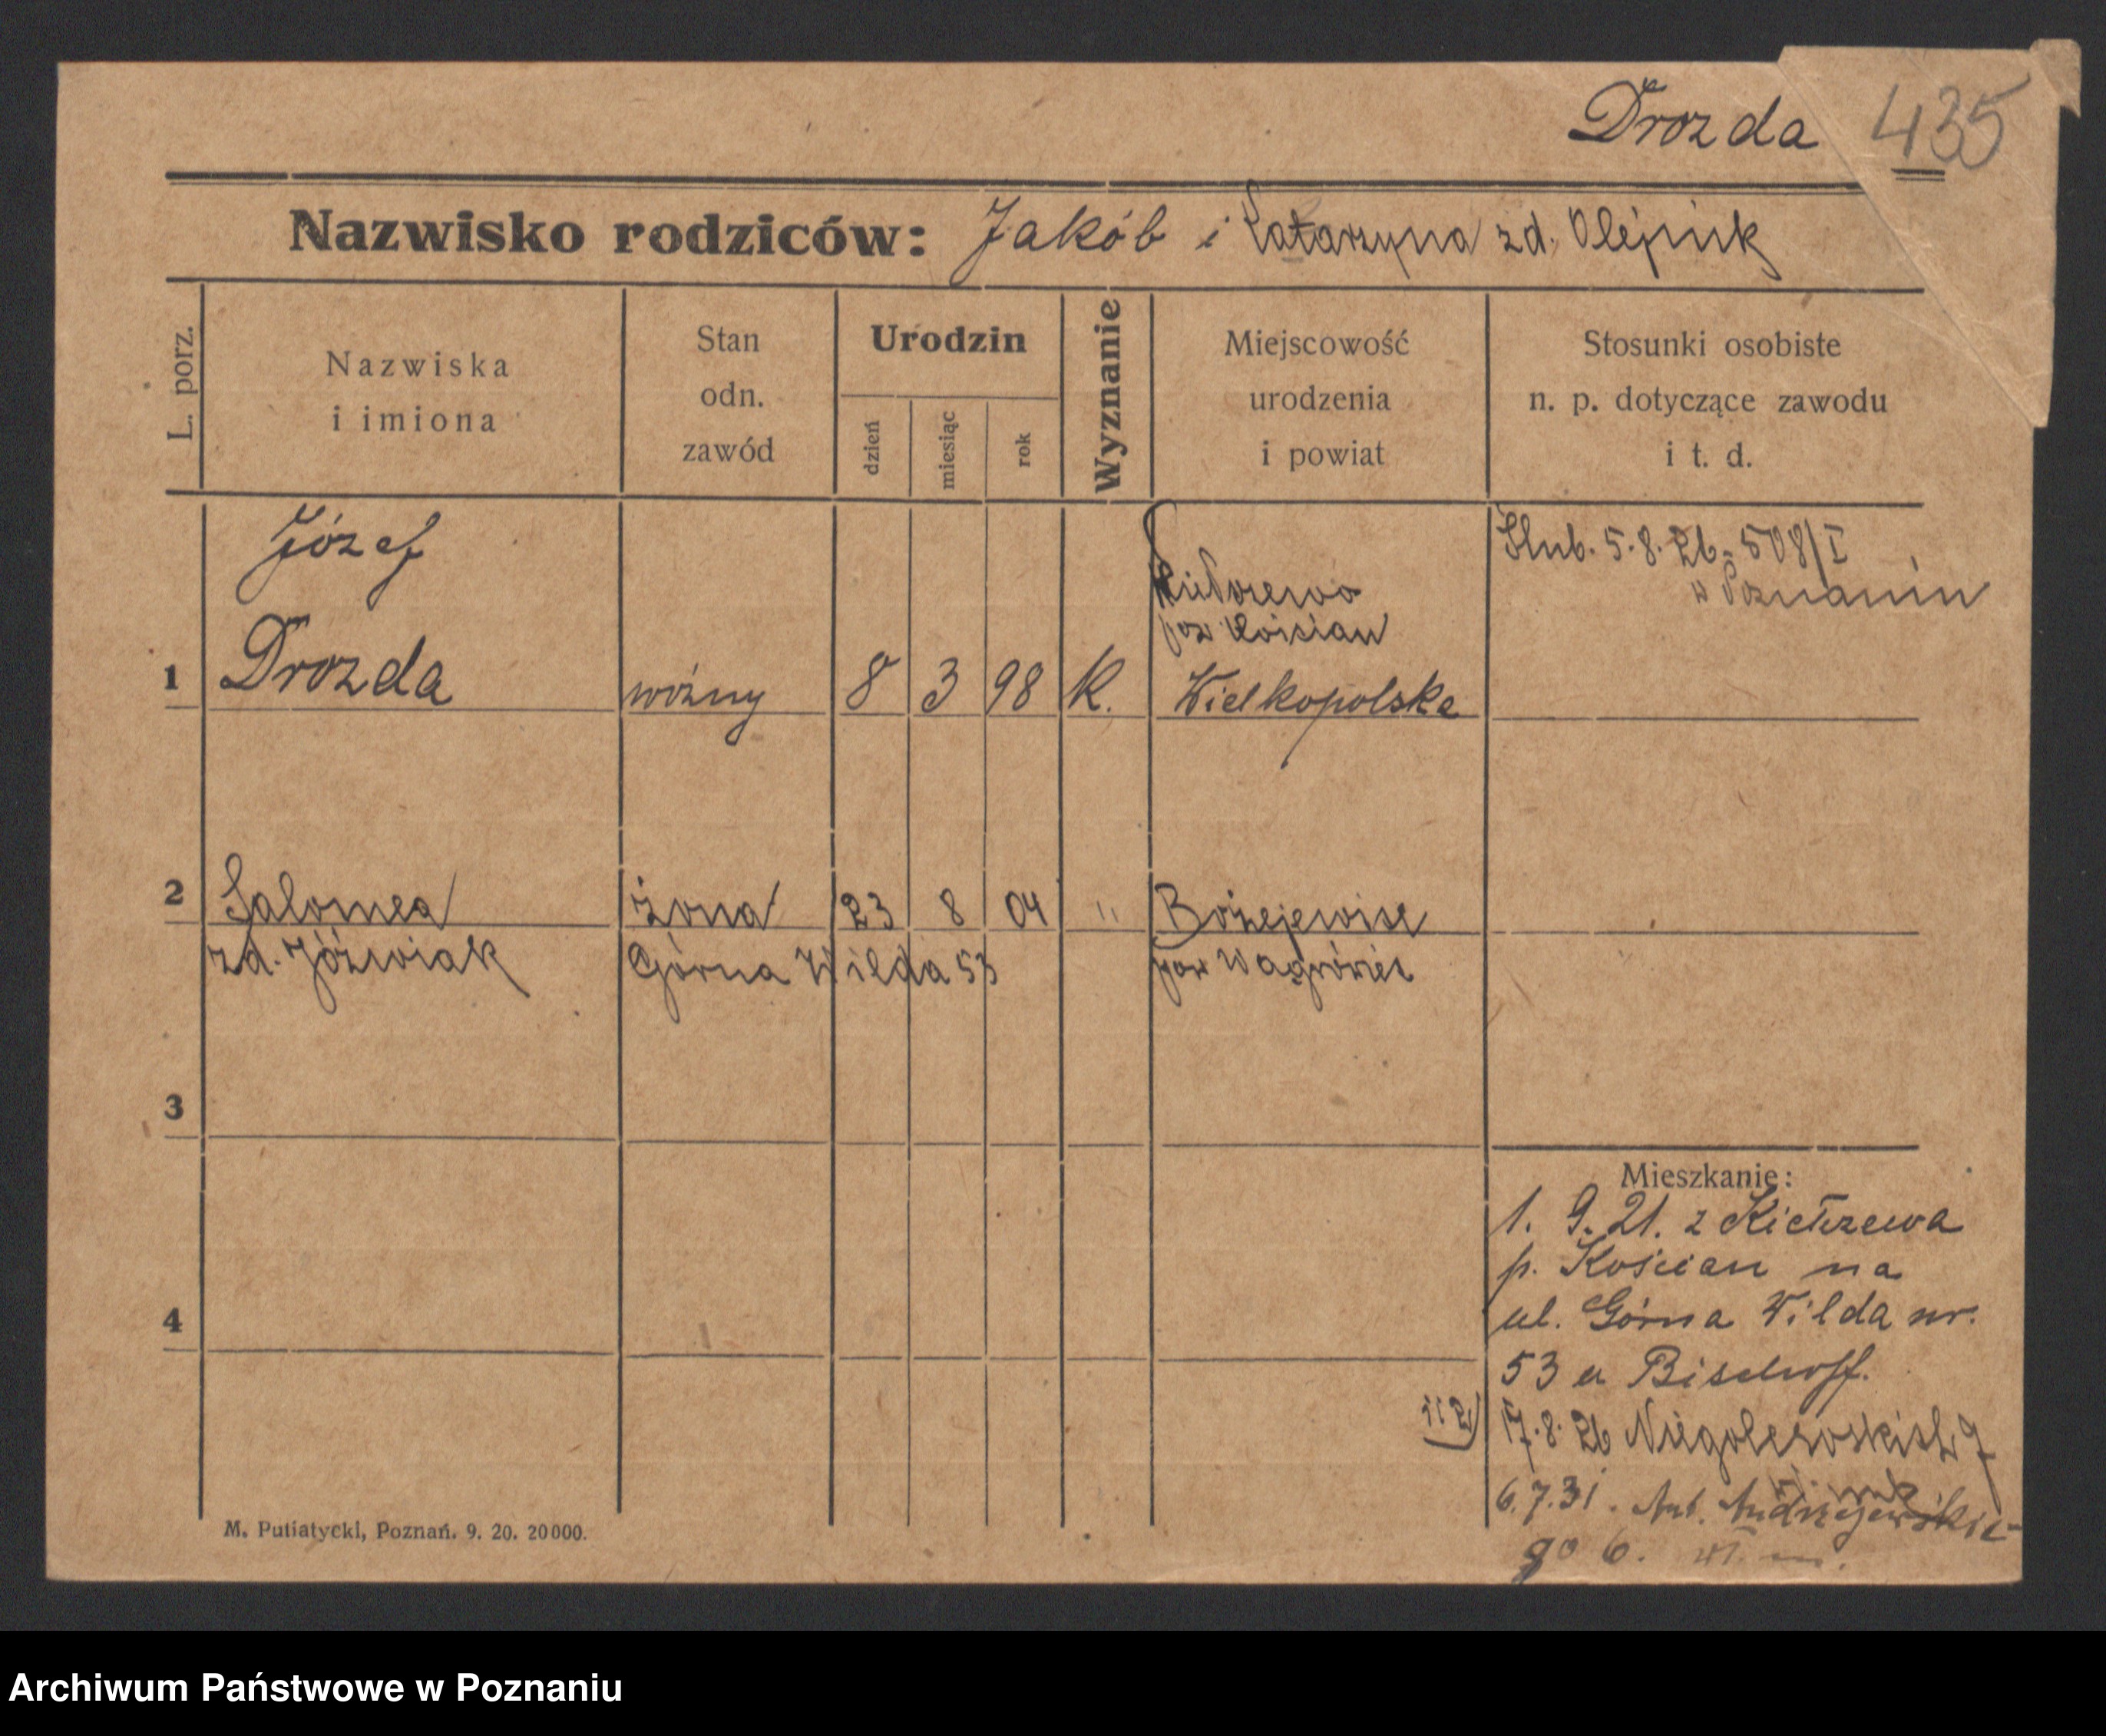 Drozda 435
Nazwisko rodziców: Jakób i Katarzyna zd. Olejnik
L. porz.
Nazwiska
i imiona
Stan
odn.
zawód
Urodzin
dzień
miesiąc
rok
Wyznanie
Miejscowość
urodzenia
i powiat
Stosunki osobiste
n. p. dotyczące zawodu
i t. d.
1
Józef
Drozda
woźny
8 3 98 K.
Kiełczewo
pow Kościan
Wielkopolska
Ślub. 5.8.26. 508/I
w Poznaniu
2
Salomea
zd. Jóźwiak
żona
23 8 04 "
Górna Wilda 53
Bożejewice
pow Wągrówiec
3
4
Mieszkanie:
1. 9. 21. z Kiełczewa
p. Kościan na
ul. Górna Wilda nr.
53 u Bischoff.
i 2) 17.8.26 Niegolewskich 9
6.7.31. Ant. Andrzejewskie-
go 6.
M. Putiatycki, Poznań. 9. 20. 20000.
Archiwum Państwowe w Poznaniu